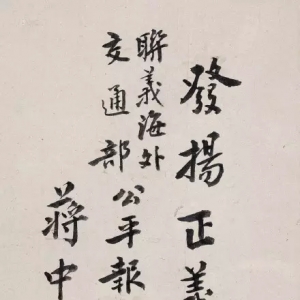 發揚正義
聯義海外
交通部公平報
蔣中